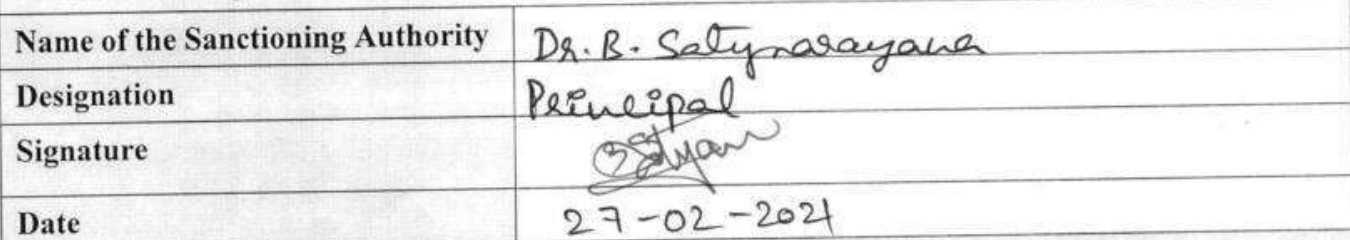 Name of the Sanctioning Authority Dr. B. Satynarayana
Designation Principal
Signature
Date 27-02-2021